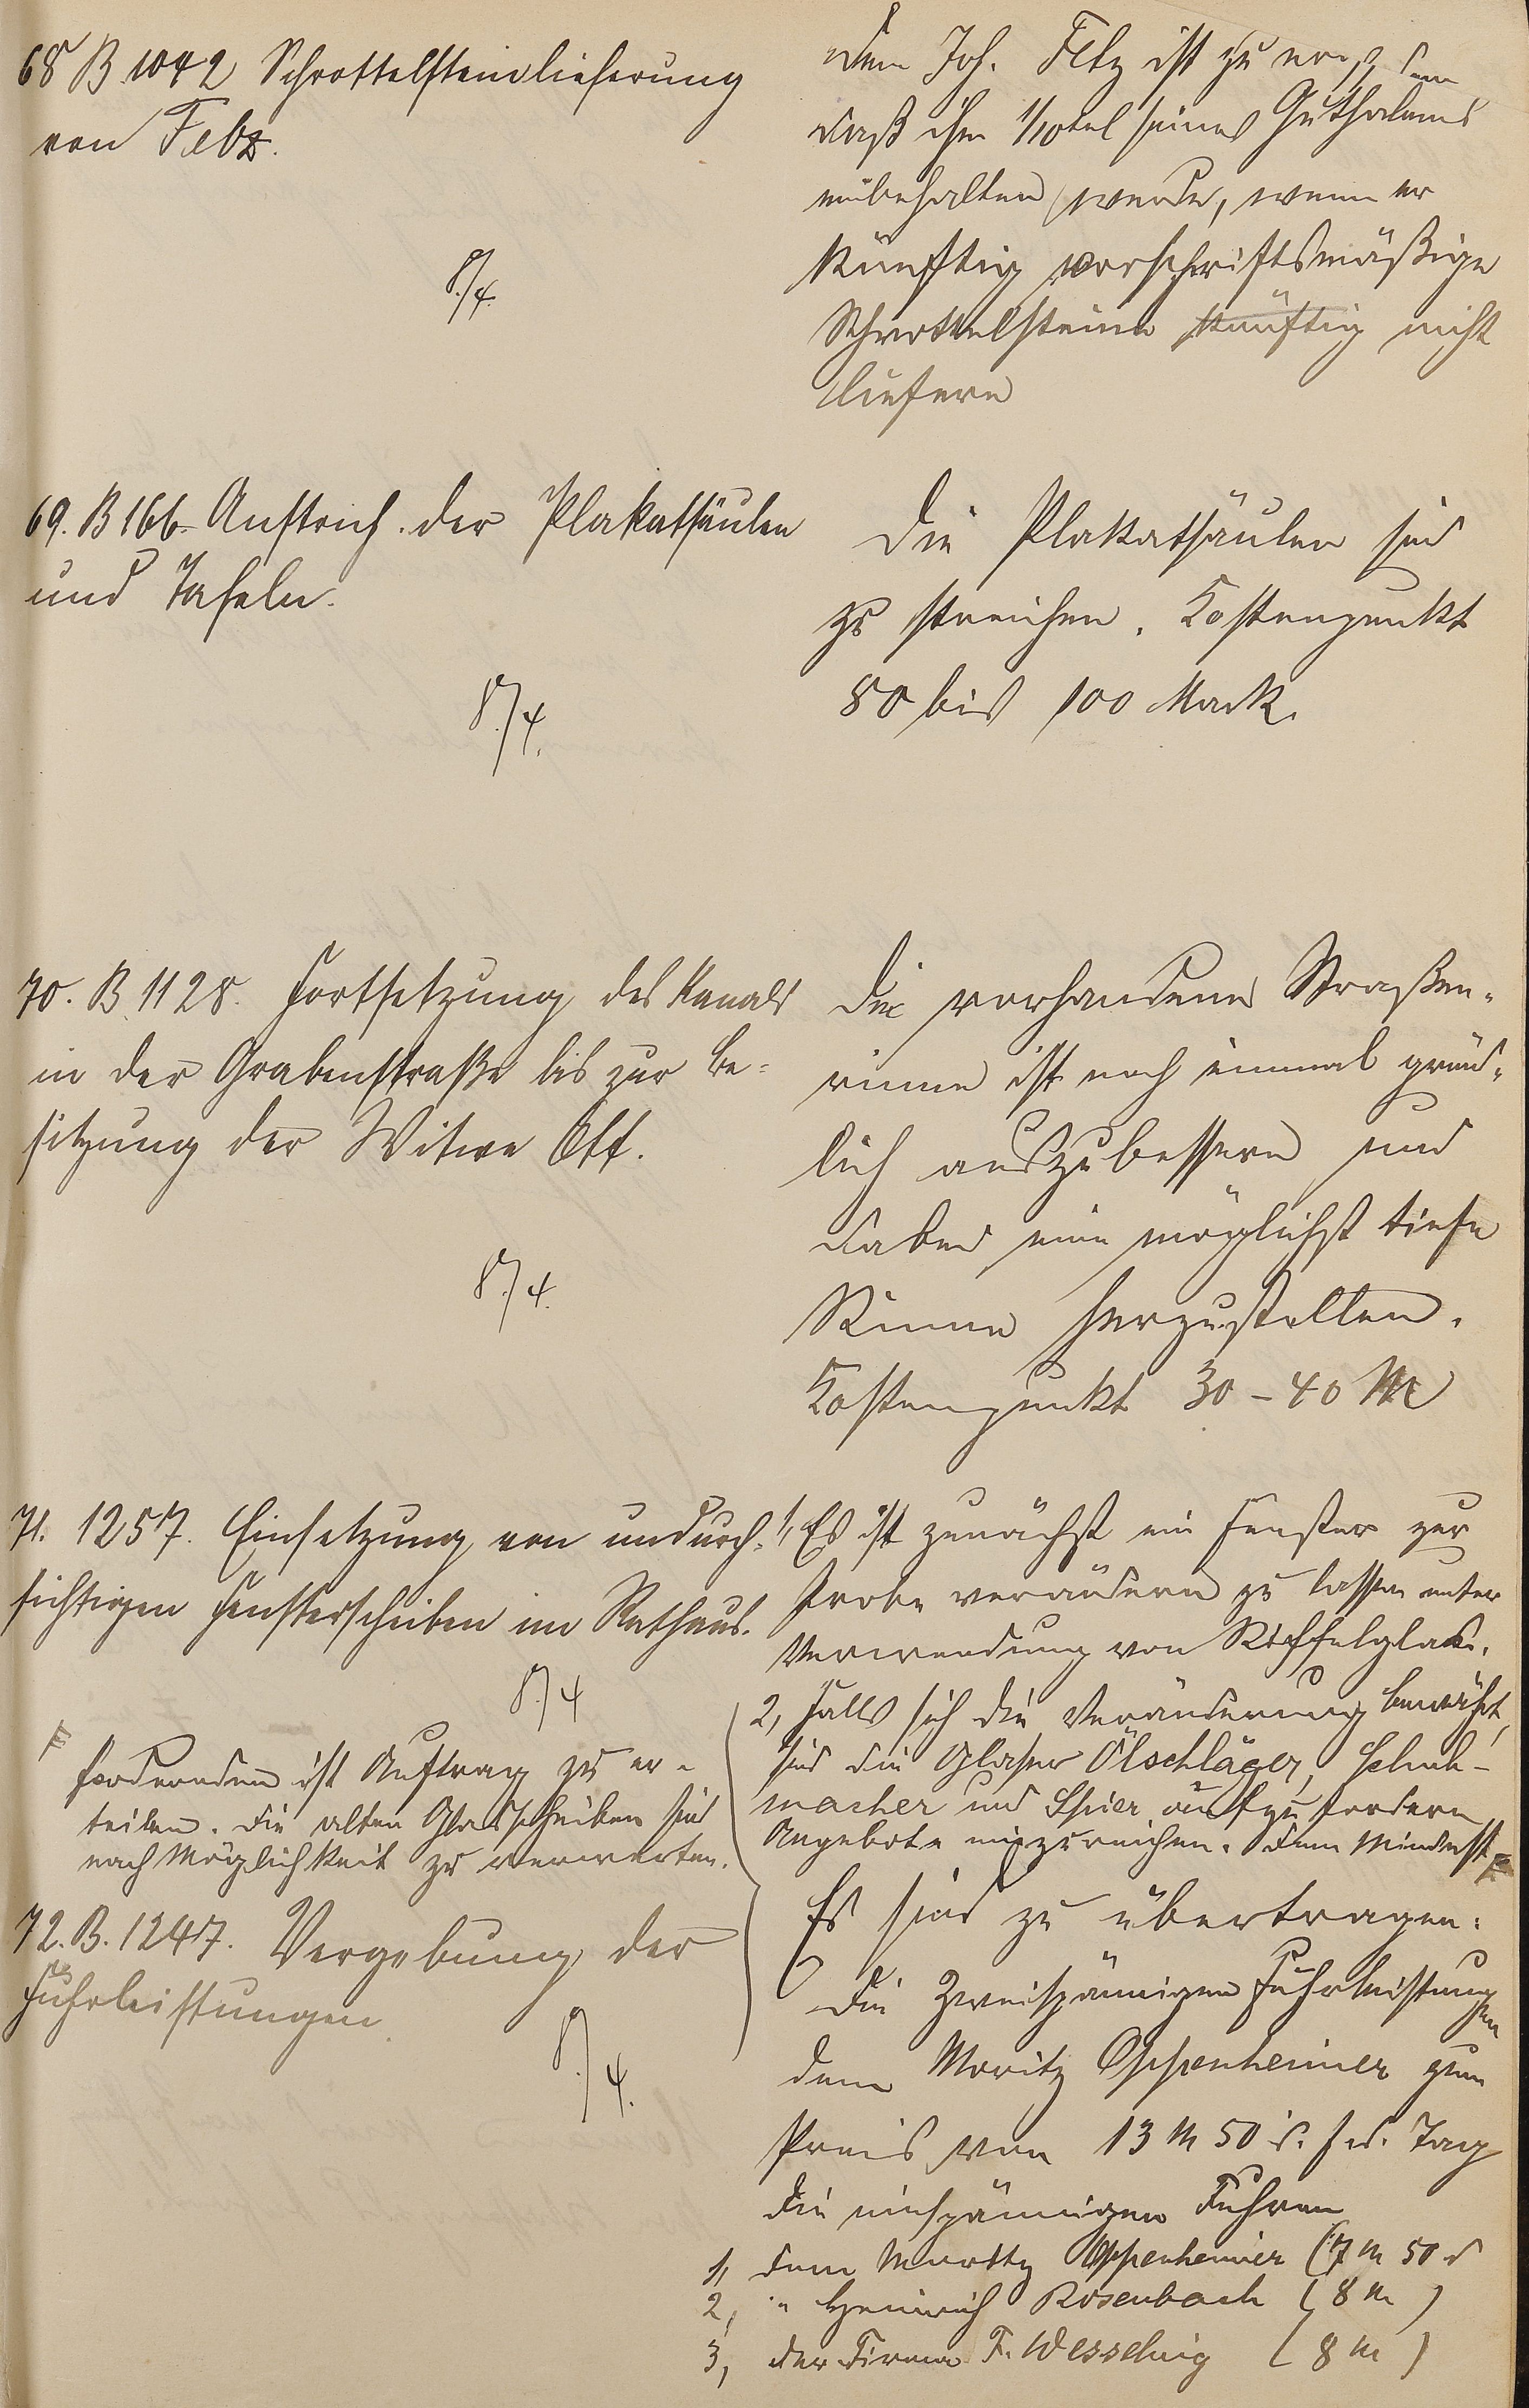 68 B 1042 Schrottelsteinlieferung
von Feltz.
8./4.
Dem Joh. Feltz ist zu
daß ihm 1/10tel seines Guthabens
einbehalten werde, wenn er
künftig vorschriftsmäßige
Schrottelsteine künftig nicht
liefere
69. B 166 Anstrich der Plakatsäulen
und Tafeln.
8./4.
Die Plakatsäulen sind
zu streichen. Kostenpunkt
80 bis 100 Mark.
70. B 1128. Fortsetzung des Kanals
in der Grabenstraße bis zur Be=
sitzung der Witwe Ott.
8./4.
Die vorhandene Straßen-
rinne ist noch einmal gründ-
lich auszubessern und
dabei eine möglichst tiefe
Rinne herzustellen.
Kostenpunkt 30 – 40 M
71. 1257. Einsetzung von undurch-
sichtigen Fensterscheiben im Rathaus.
8./4
1, Es ist zunächst ein Fenster zur
Probe verändern zu lassen unter
Verwendung von Riffelglas.
2, Falls sich die Veränderung bewährt,
sind die Glaser Ölschläger, Schuh-
macher und Spier aufzufordern
Angebote einzureichen. Dem Mindest
fordernden ist Auftrag zu er-
teilen. Die alten Glasscheiben sind
nach Möglichkeit zu verwerten.
72. B. 1247. Vergebung der
Fuhrleistungen
8./4.
Es sind zu übertragen:
Die zweispännigen Fuhrleistungen
dem Moritz Oppenheimer zum
Preis von 13 M 50 Tag
Die einspännigen Fuhren
1, dem Moritz Oppenheimer (7 M 50
2, " Heinrich Rosenbach (8 M)
3, der Firma F. Wesseling (8 M)